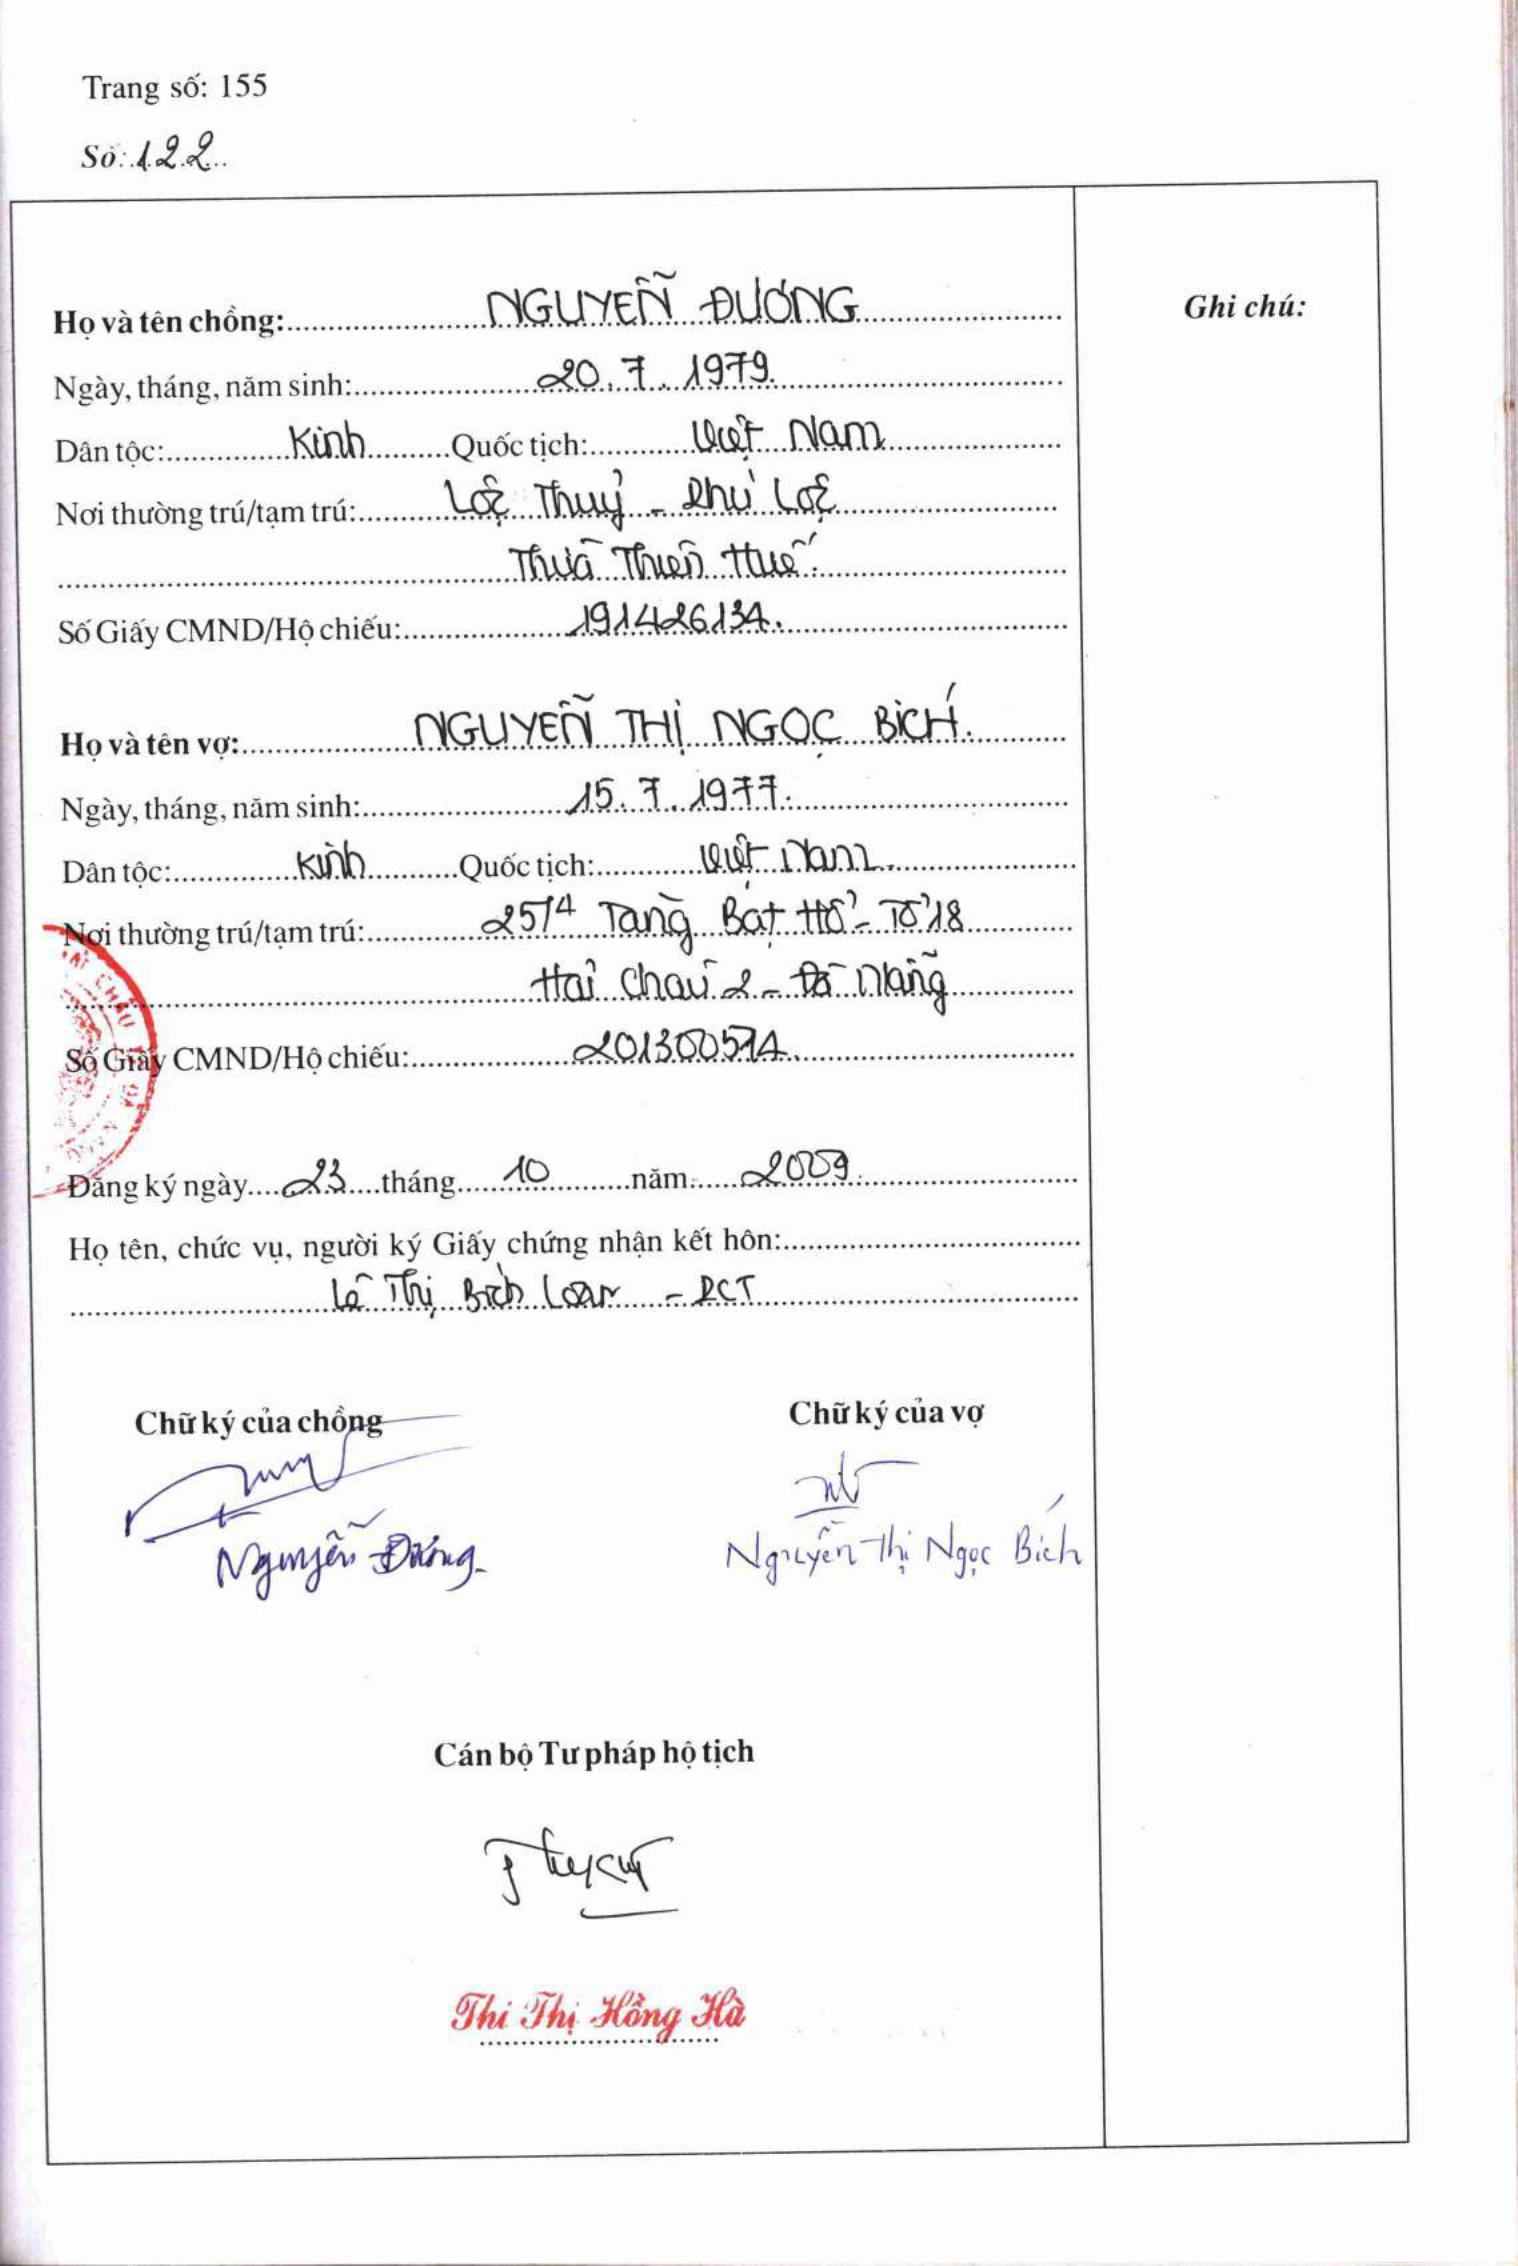 Trang số: 155
Số: 122
Họ và tên chồng: NGUYỄN ĐƯỜNG
Ghi chú:
Ngày, tháng, năm sinh: 20.7.1979.
Dân tộc: Kinh Quốc tịch: Việt Nam
Nơi thường trú/tạm trú: Lộc Thuỷ - Phú Lộc
Thừa Thiên Huế.
Số Giấy CMND/Hộ chiếu: 191426134.
Họ và tên vợ: NGUYỄN THỊ NGỌC BÍCH.
Ngày, tháng, năm sinh: 15.7.1977.
Dân tộc: Kinh Quốc tịch: Việt Nam.
Nơi thường trú/tạm trú: Tăng Bạt Hổ - Tổ 18
Hải Châu 2 - Đà Nẵng
Số Giấy CMND/Hộ chiếu:
Đăng ký ngày 23 tháng 10 năm 2009.
Họ tên, chức vụ, người ký Giấy chứng nhận kết hôn:
Lê Thị Bích Loan - PCT
Chữ ký của chồng
Chữ ký của vợ
Nguyễn
Nguyễn Thị Ngọc Bích
Cán bộ Tư pháp hộ tịch
Thi Thị Hồng Hà